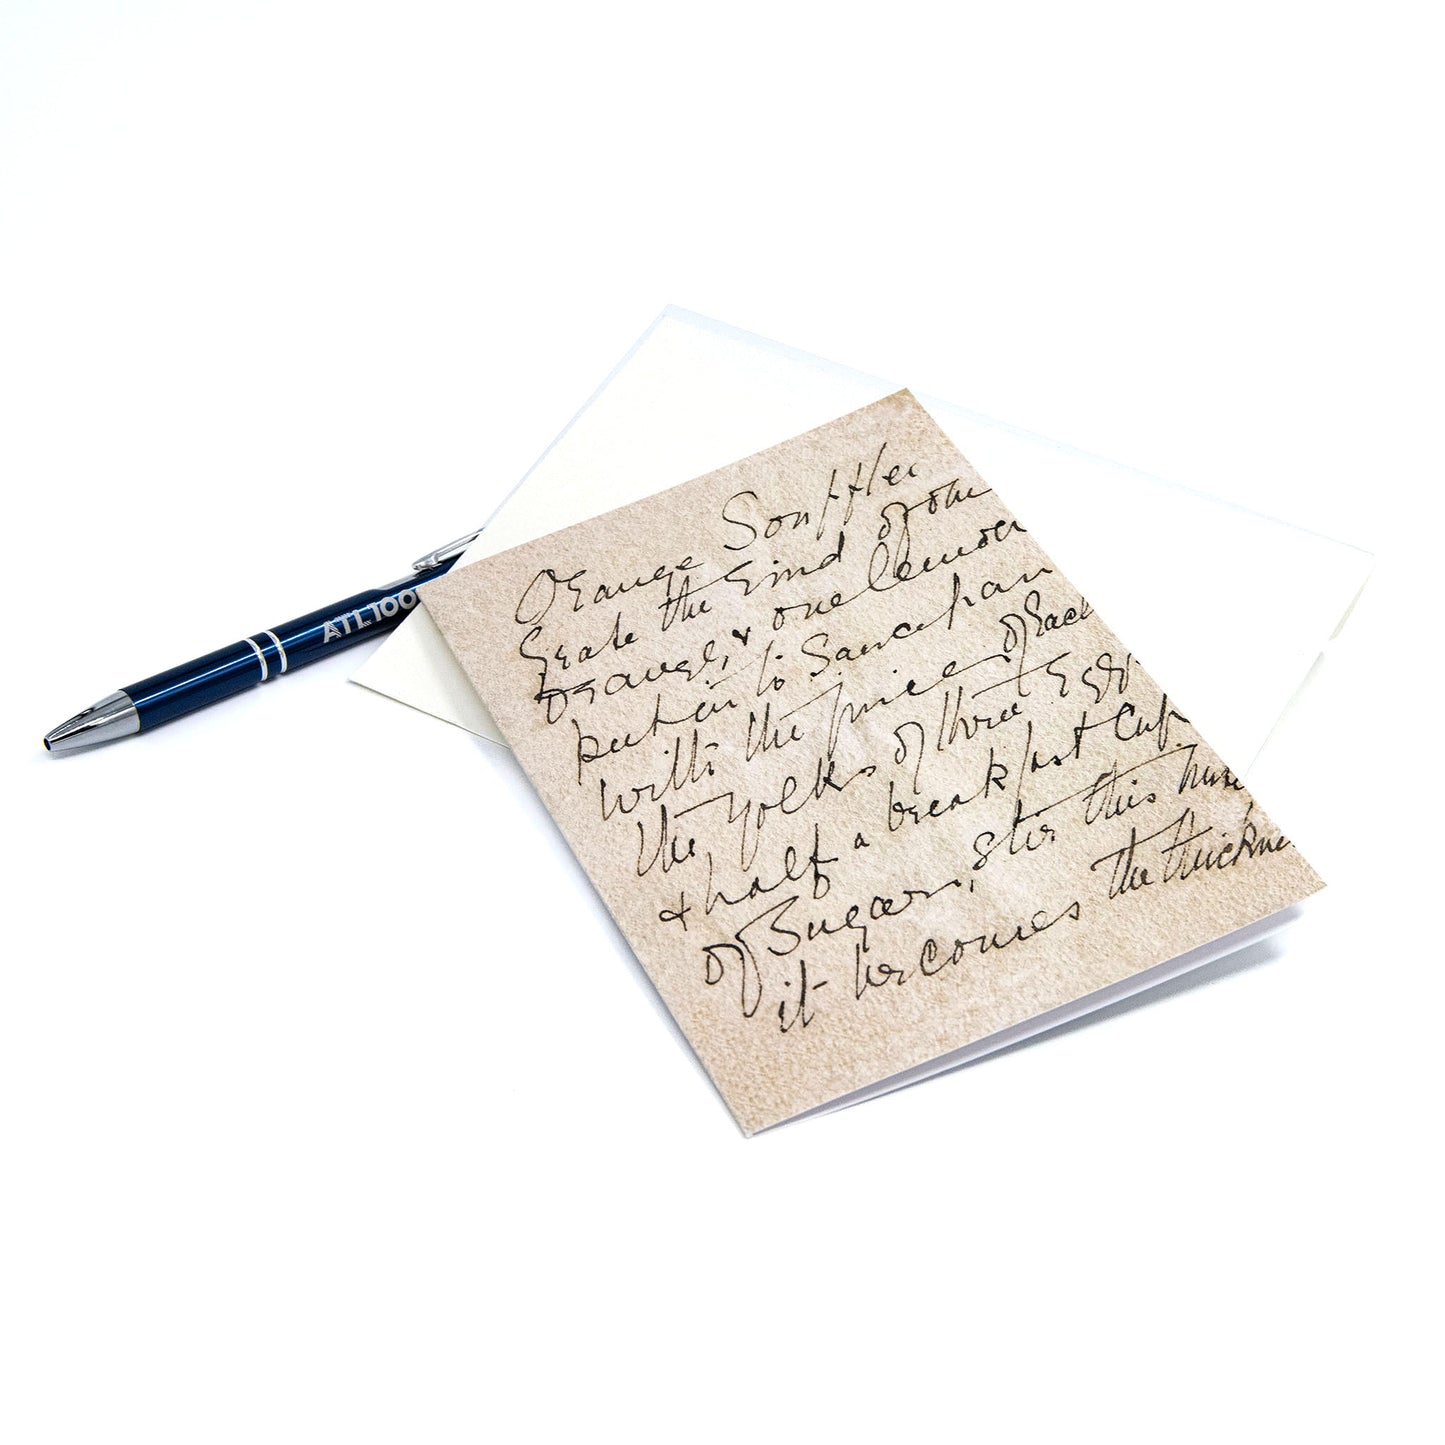 Orange Souffler
Grate the Rind of one
orange, & one lemon
put in to Saucepan
with the juice of Each
the yolks of three Eggs
& half a breakfast Cup
of Sugar, stir this
it becomes the thickne
ATL100